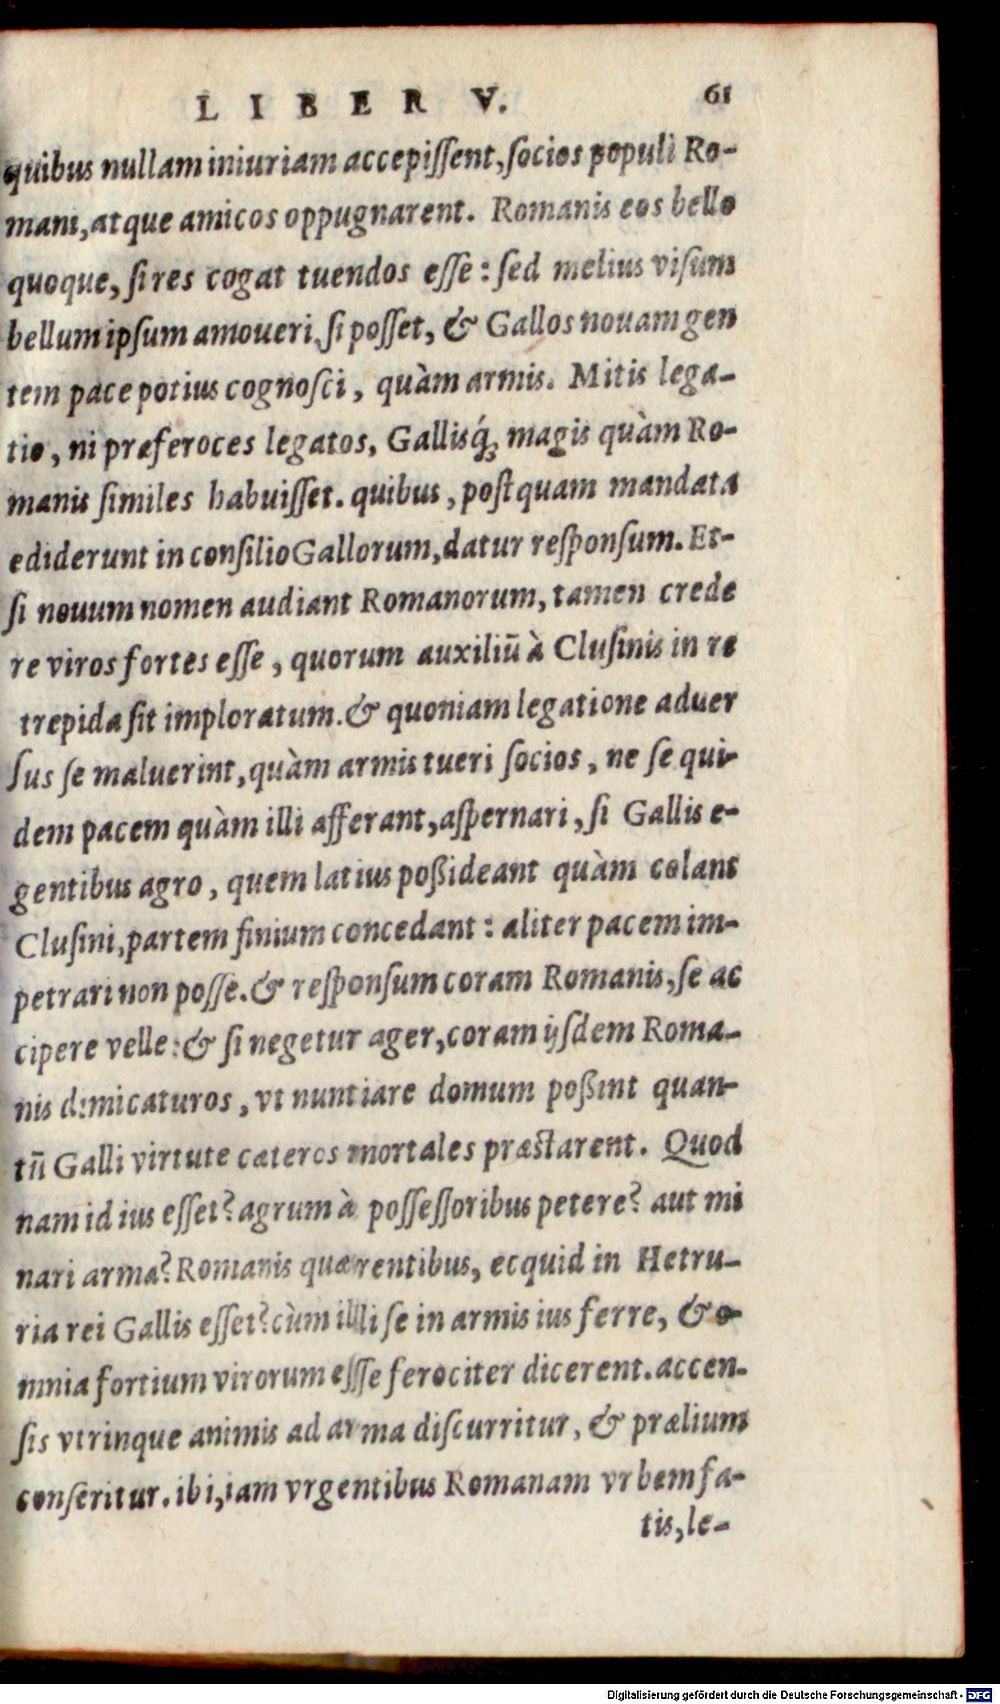 LIBER V. 61
quibus nullam iniuriam accepiſſent, ſocios populi Ro-
mani, atque amicos oppugnarent. Romanis eos bello
quoque, ſi res cogat tuendos eſſe: ſed melius viſum
bellum ipſum amoueri, ſi poſſet, & Gallos nouam gen
tem pace potius cognoſci, quàm armis. Mitis lega-
tio, ni præferoces legatos, Gallisq́; magis quàm Ro-
manis ſimiles habuiſſet. quibus, poſtquam mandata
ediderunt in conſilio Gallorum, datur reſponſum. Et-
ſi nouum nomen audiant Romanorum, tamen crede
re viros fortes eſſe, quorum auxiliū à Cluſinis in re
trepida ſit imploratum. & quoniam legatione aduer
ſus ſe maluerint, quàm armis tueri ſocios, ne ſe qui-
dem pacem quàm illi afferant, aſpernari, ſi Gallis e-
gentibus agro, quem latius poßideant quàm colant
Cluſini, partem finium concedant: aliter pacem im-
petrari non poſſe. & reſponſum coram Romanis, ſe ac
cipere velle: & ſi negetur ager, coram ijſdem Roma-
nis dimicaturos, vt nuntiare domum poßint quan-
tū Galli virtute cæteros mortales præſtarent. Quod
nam id ius eſſet? agrum à poſſeſſoribus petere? aut mi
nari arma? Romanis quærentibus, ecquid in Hetru-
ria rei Gallis eſſet? cùm illi ſe in armis ius ferre, & o-
mnia fortium virorum eſſe ferociter dicerent. accen-
ſis vtrinque animis ad arma diſcurritur, & prælium
conſeritur. ibi, iam vrgentibus Romanam vrbem fa-
tis, le-
Digitalisierung gefördert durch die Deutsche Forschungsgemeinschaft - DFG